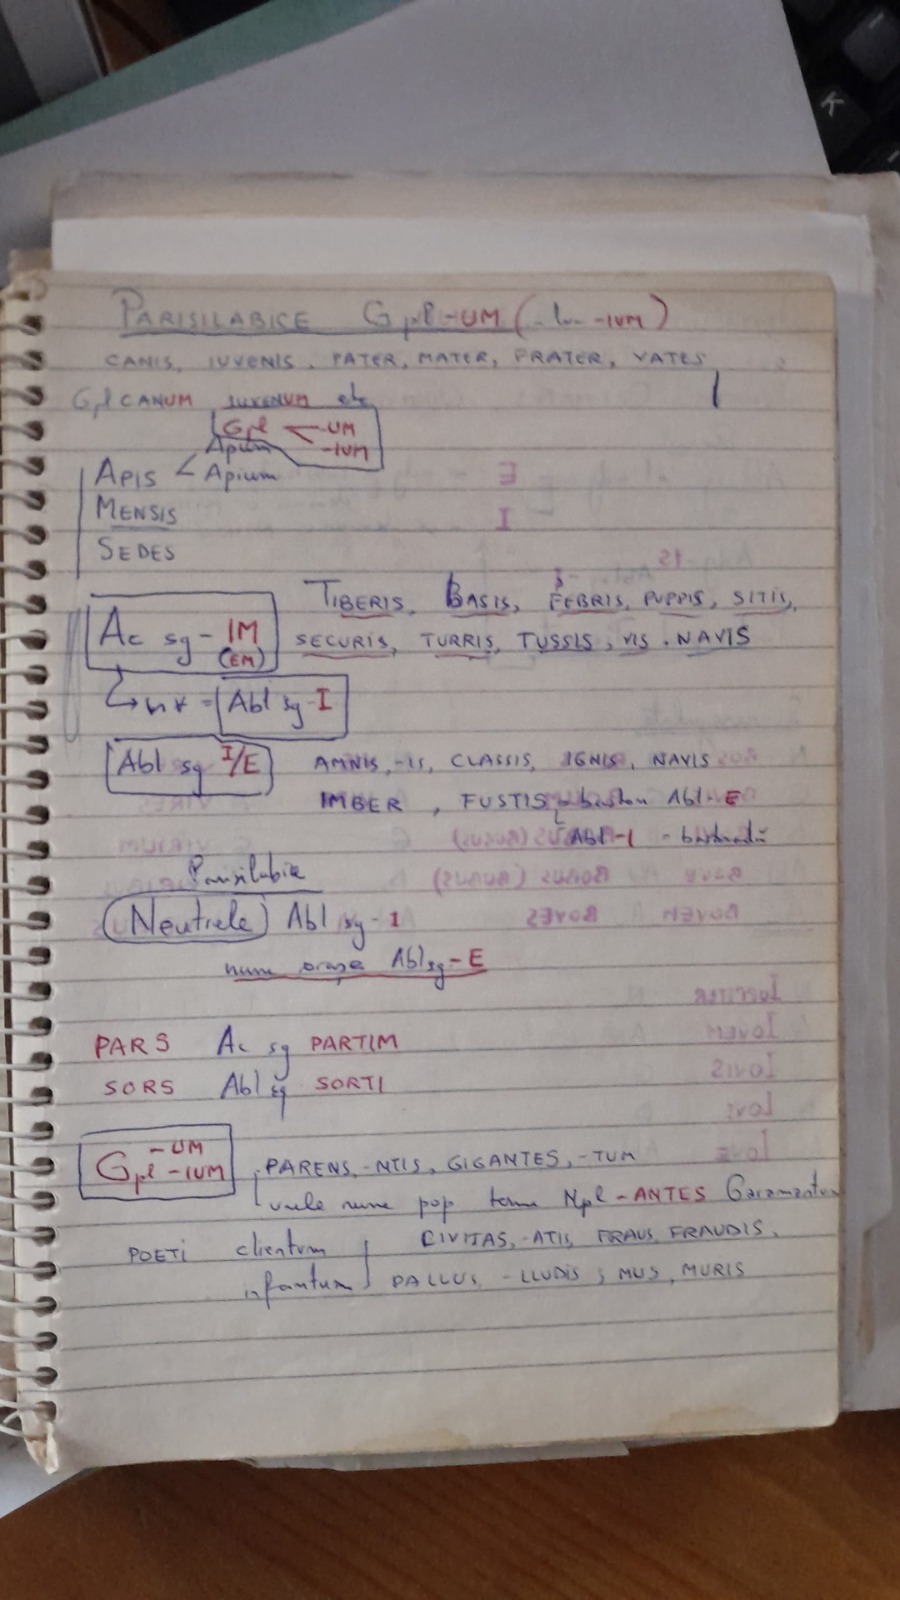 PARISILABICE Gpl -UM ( -IUM)
CANIS, IUVENIS, PATER, MATER, FRATER, VATES
Gpl CANUM IUVENUM etc
Gpl -UM
-IUM
Apum
APIS < Apium
MENSIS
SEDES
TIBERIS, BASIS, FEBRIS, PUPPIS, SITIS,
Ac sg - IM
(EM)
SECURIS, TURRIS, TUSSIS, VIS. NAVIS
Abl sg -I
Abl sg I/E AMNIS, -IS, CLASSIS, IGNIS, NAVIS
IMBER, FUSTIS - baston Abl -E
Abl -I - bastonadă
Parisilabice
Neutrele Abl sg -I
nume orașe Abl sg -E
PARS Ac sg PARTIM
SORS Abl sg SORTI
Gpl -UM
-IUM
PARENS, -NTIS, GIGANTES, -TUM
unele nume pop term Npl -ANTES Garamantum
POETI clientum CIVITAS, -ATIS, FRAUS, FRAUDIS,
infantum PALLUS, -LLUDIS ; MUS, MURIS